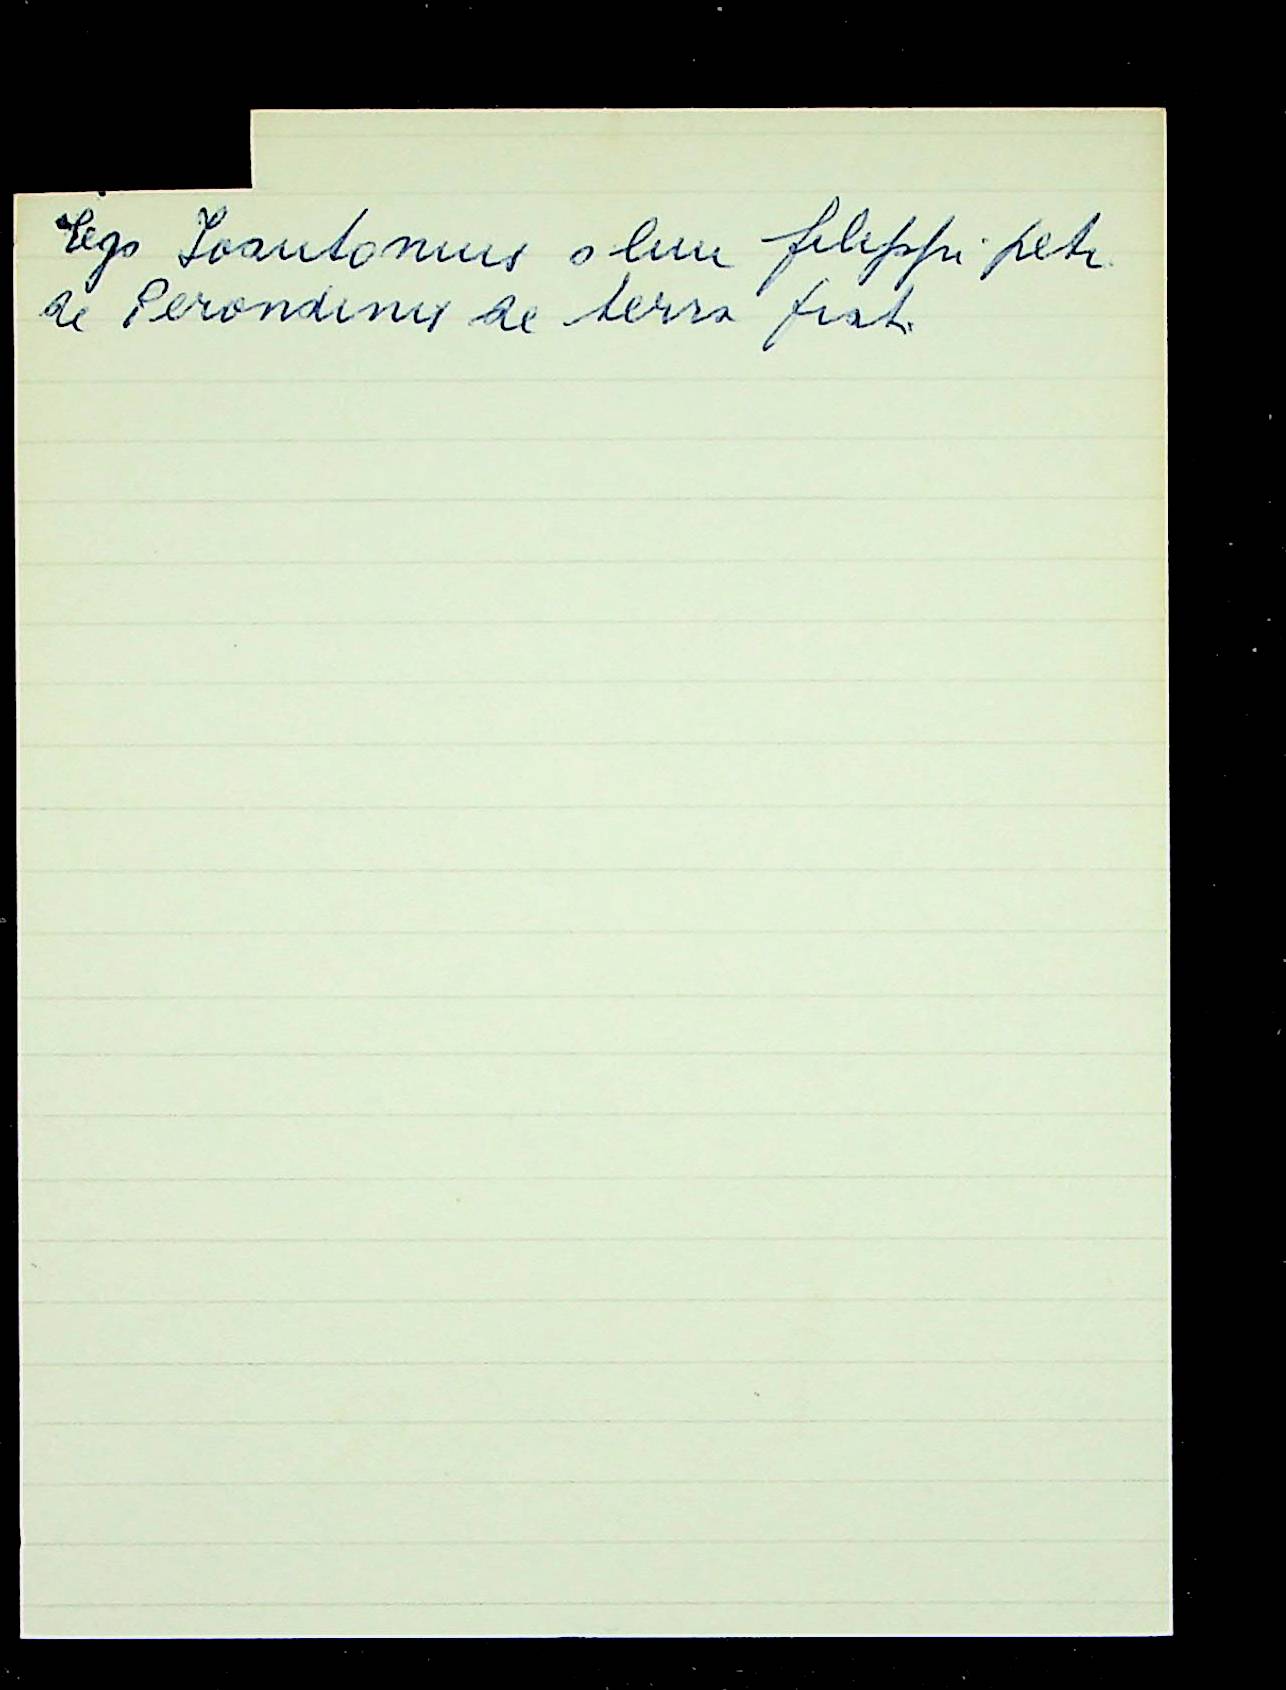 Ego Ioantonius olim filippi petri
de Perondinis de terra frat.